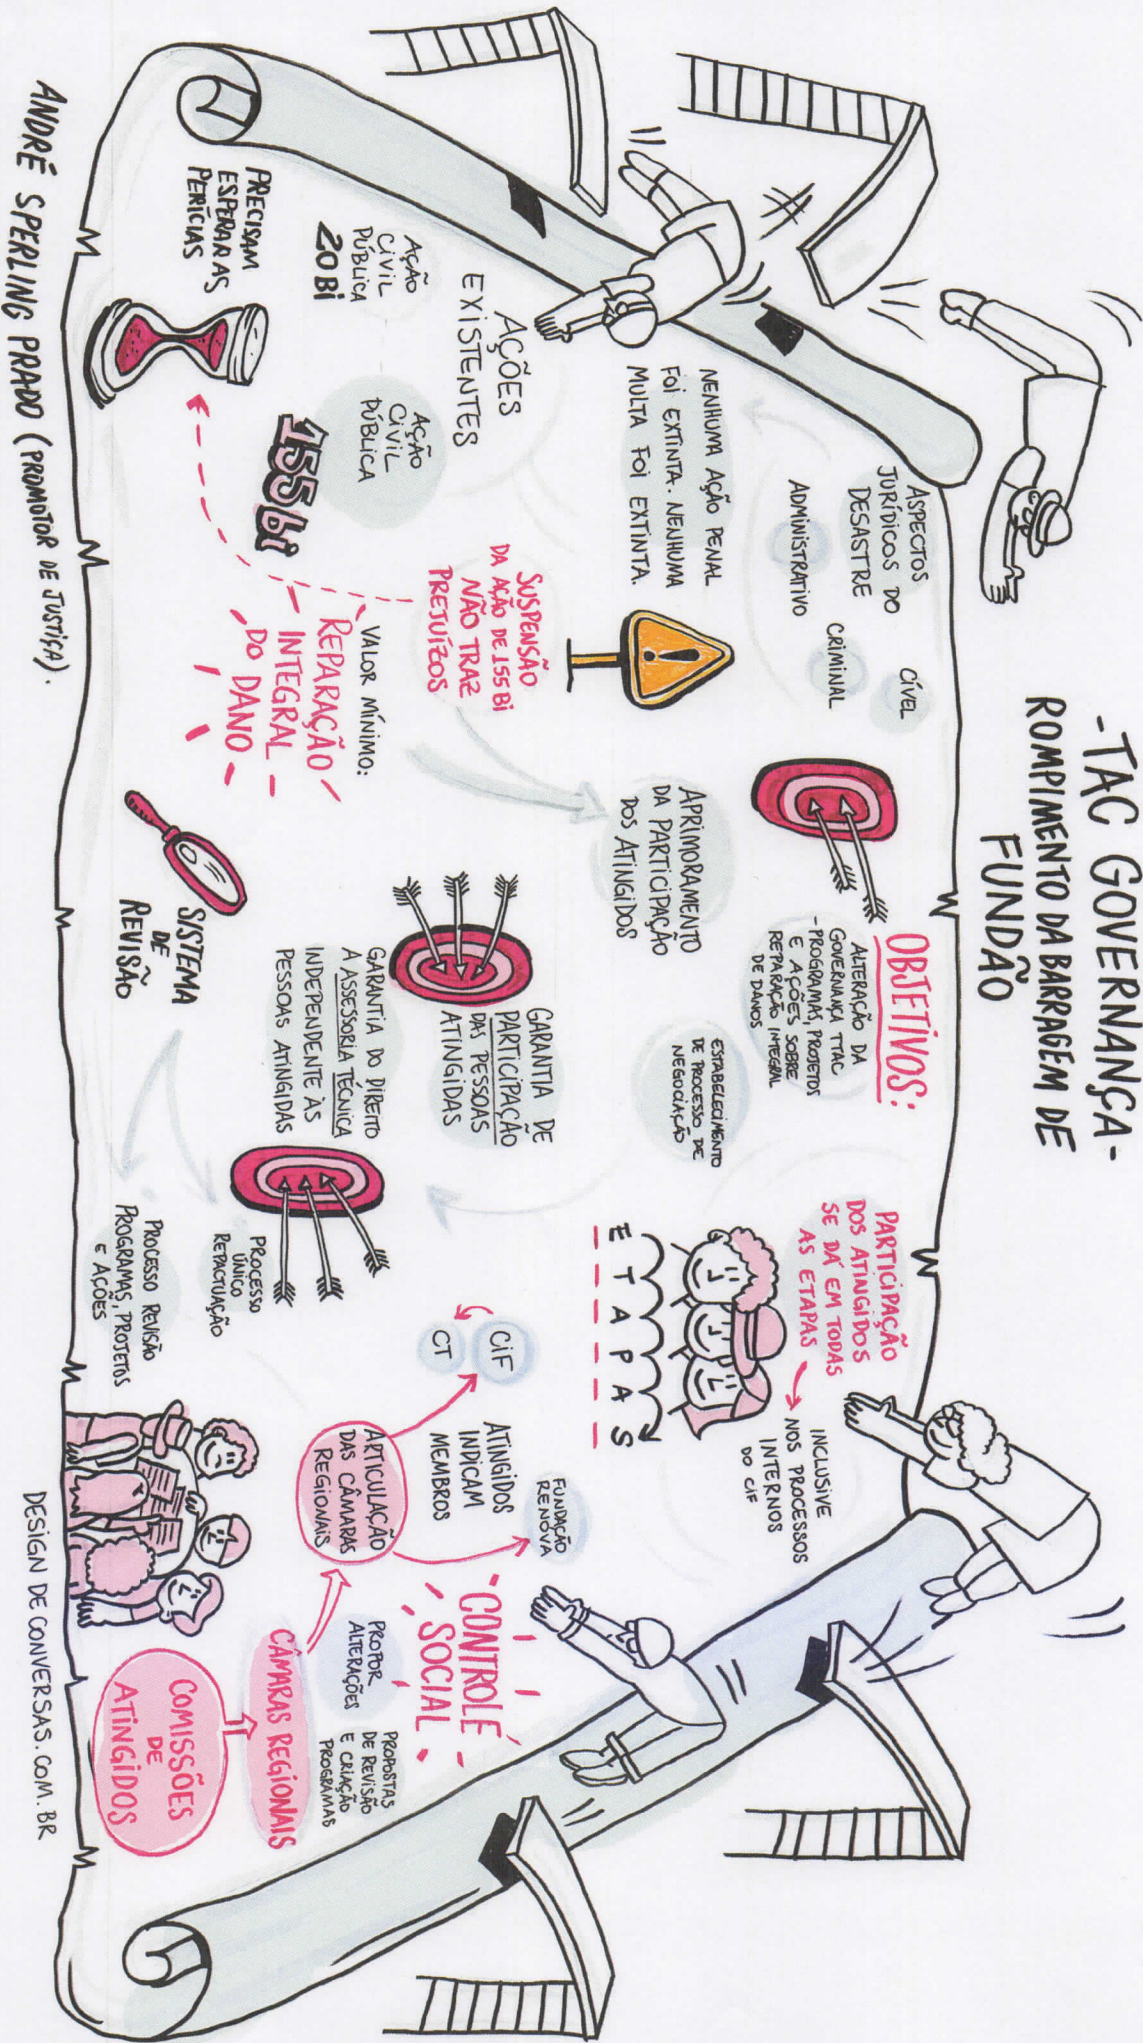 -TAC GOVERNANÇA-
ROMPIMENTO DA BARRAGEM DE
FUNDÃO
ASPECTOS
JURÍDICOS DO
DESASTRE
CÍVEL
CRIMINAL
ADMINISTRATIVO
NENHUMA AÇÃO PENAL
FOI EXTINTA. NENHUMA
MULTA FOI EXTINTA.
AÇÕES
EXISTENTES
AÇÃO
CIVIL
PÚBLICA
20 Bi
AÇÃO
CIVIL
PÚBLICA
155 bi
PRECISAM
ESPERAR AS
PERÍCIAS
SUSPENSÃO
DA AÇÃO DE 155 Bi
NÃO TRAZ
PREJUÍZOS
VALOR MÍNIMO:
REPARAÇÃO
INTEGRAL
DO DANO
OBJETIVOS:
ALTERAÇÃO DA
GOVERNANÇA TTAC
-PROGRAMAS, PROJETOS
E AÇÕES SOBRE
REPARAÇÃO INTEGRAL
DE DANOS
APRIMORAMENTO
DA PARTICIPAÇÃO
DOS ATINGIDOS
ESTABELECIMENTO
DE PROCESSO DE
NEGOCIAÇÃO
GARANTIA DE
PARTICIPAÇÃO
DAS PESSOAS
ATINGIDAS
GARANTIA DO DIREITO
A ASSESSORIA TÉCNICA
INDEPENDENTE ÀS
PESSOAS ATINGIDAS
SISTEMA
DE
REVISÃO
PROCESSO
ÚNICO
REPACTUAÇÃO
PROCESSO REVISÃO
PROGRAMAS, PROJETOS
E AÇÕES
PARTICIPAÇÃO
DOS ATINGIDOS
SE DÁ EM TODAS
AS ETAPAS
INCLUSIVE
NOS PROCESSOS
INTERNOS
DO CIF
ETAPAS
CIF
CT
ATINGIDOS
INDICAM
MEMBROS
FUNDAÇÃO
RENOVA
ARTICULAÇÃO
DAS CÂMARAS
REGIONAIS
CONTROLE
SOCIAL
PROPOR
ALTERAÇÕES
PROPOSTAS
DE REVISÃO
E CRIAÇÃO
PROGRAMAS
CÂMARAS REGIONAIS
COMISSÕES
DE
ATINGIDOS
ANDRÉ SPERLING PRADO (PROMOTOR DE JUSTIÇA).
DESIGN DE CONVERSAS.COM.BR